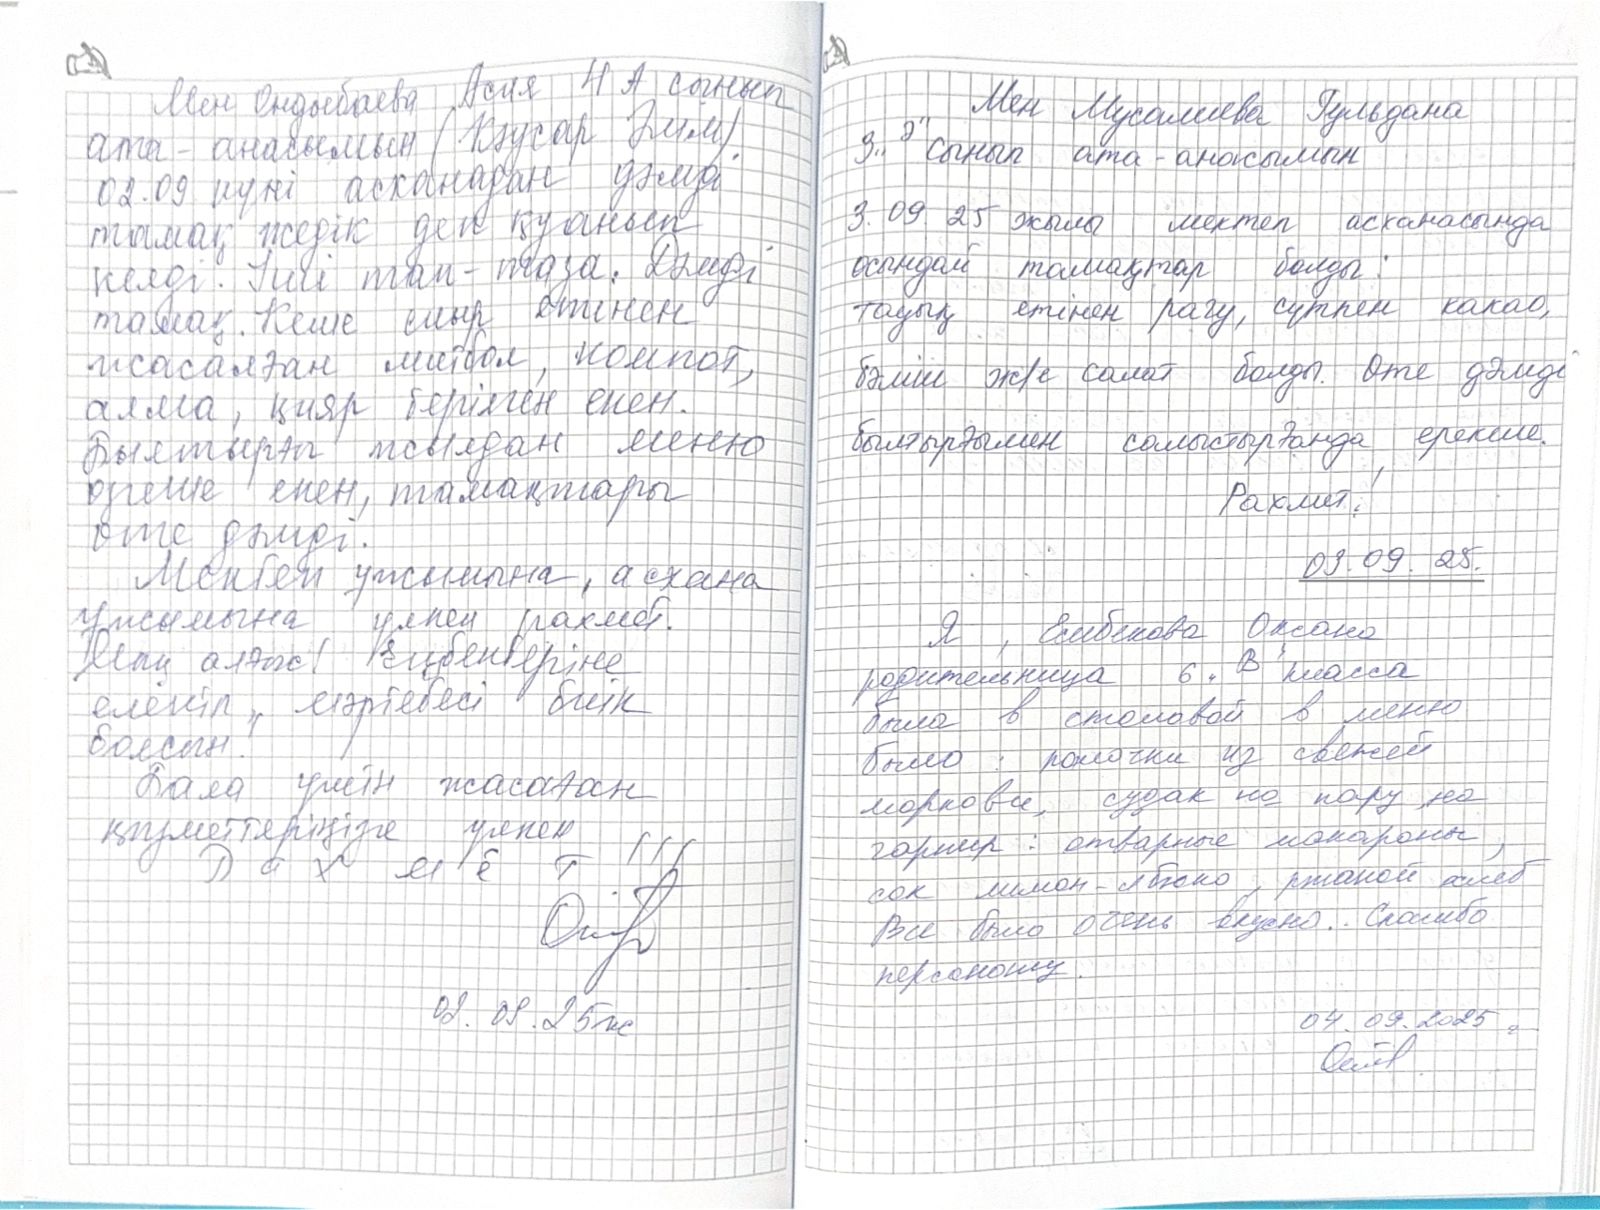 Мен Ондыбаева Асия 4 А сынып
ата-анасымын (Қаусар Әлім)
02.09 күні асханадан дәмді
тамақ жедік деп қуанып
келді. Іші тап-таза. Дәмді
тамақ. Кеше сиыр етінен
жасалған митбол, компот,
алма, қияр берілген екен.
Былтырғы жылдан меню
өзгеше екен, тамақтары
өте дәмді.
Мектеп ұжымына, асхана
ұжымына үлкен рахмет.
Мың алғыс! Еңбектеріңе
еленіп, мәртебесі биік
болсын!
Бала үшін жасаған
қызметтеріңізге үлкен
Рахмет!!!
02.09.25ж
Мен Мусалиева Гульдана
3 "Ә" сынып ата-анасымын
3.09 25 жылы мектеп асханасында
осындай тамақтар болды:
тауық етінен рагу, сүтпен какао,
бәліш ж/е салат болды. Өте дәмді
былтырғымен салыстырғанда ерекше.
Рахмет!
03.09.25.
Я, Ембекова Оксана
родительница 6 "В" класса
была в столовой в меню
было: палочки из свежей
моркови, судак на пару, на
гарнир: отварные макароны,
сок лимон-яблоко, ржаной хлеб
Все было очень вкусно.. Спасибо
персоналу.
04.09.2025 г